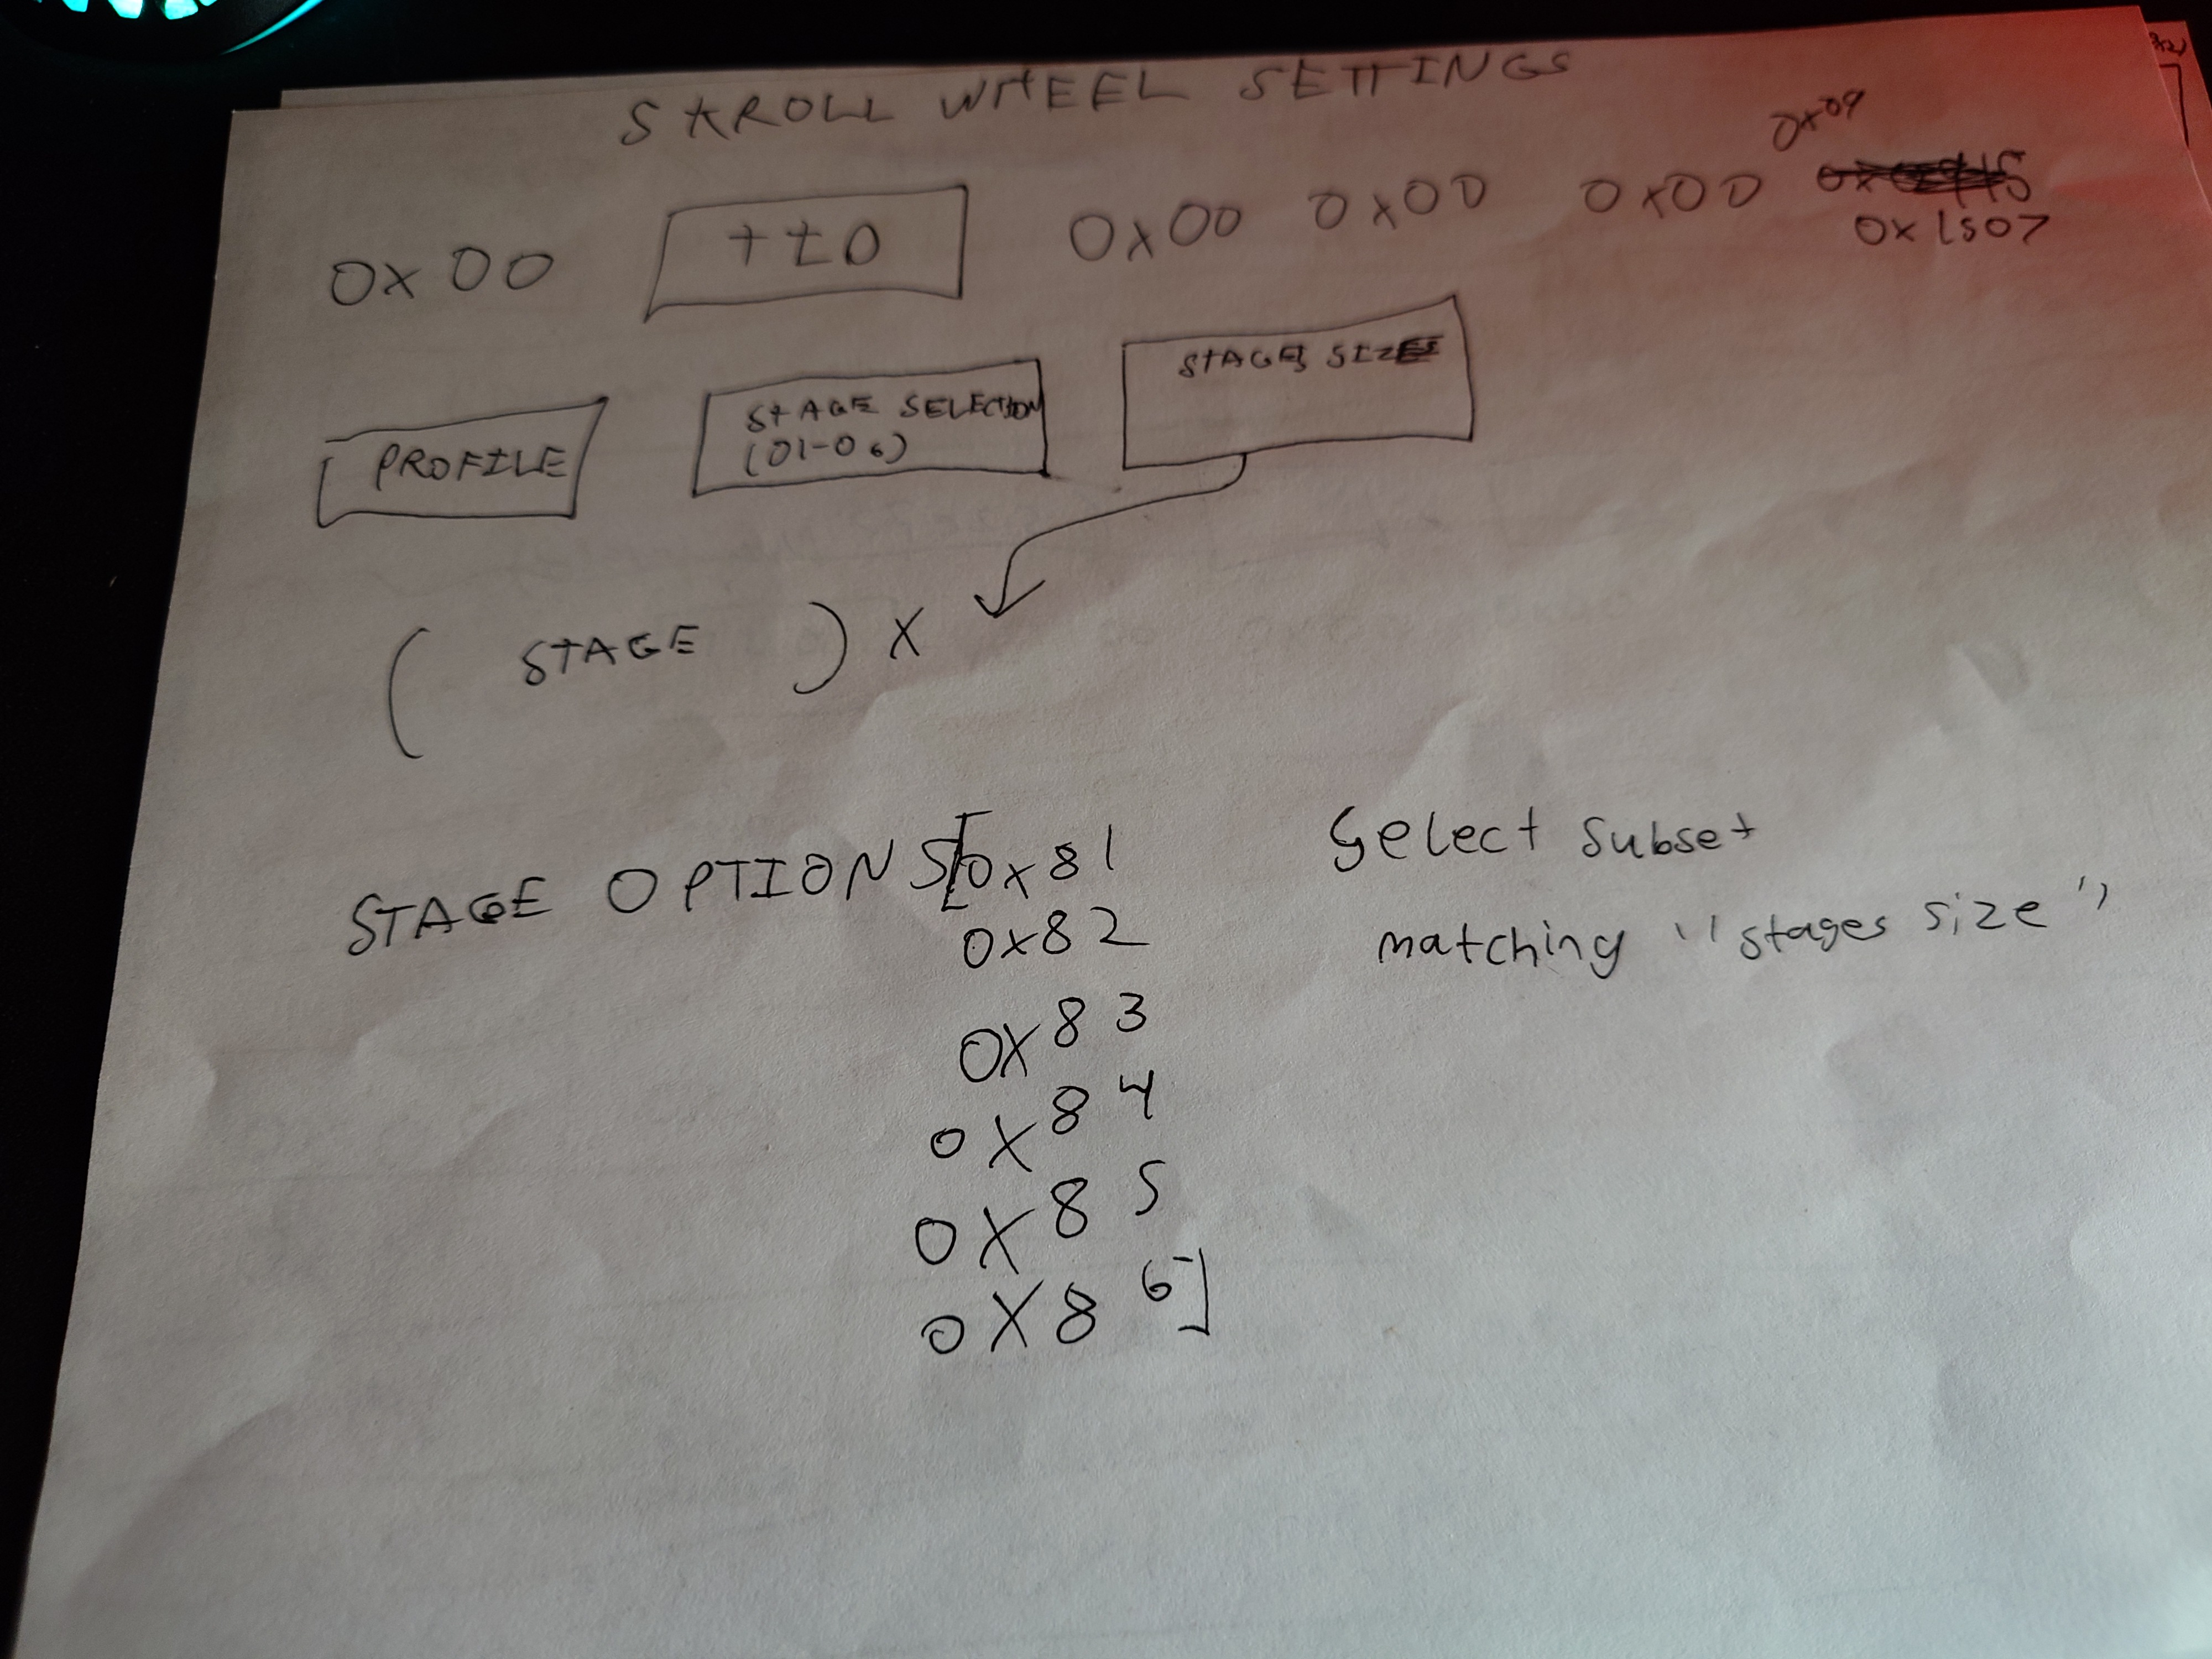 SKROLL WHEEL SETTINGS
0x09
0x00 ttD 0x00 0x00 0x00
0x1507
PROFILE
STAGE SELECTION
(01-06)
STAGES SIZE
( STAGE ) X
STAGE OPTIONS [0x81
0x82
0x83
0x84
0x85
0x86]
Select subset
matching "stages size"